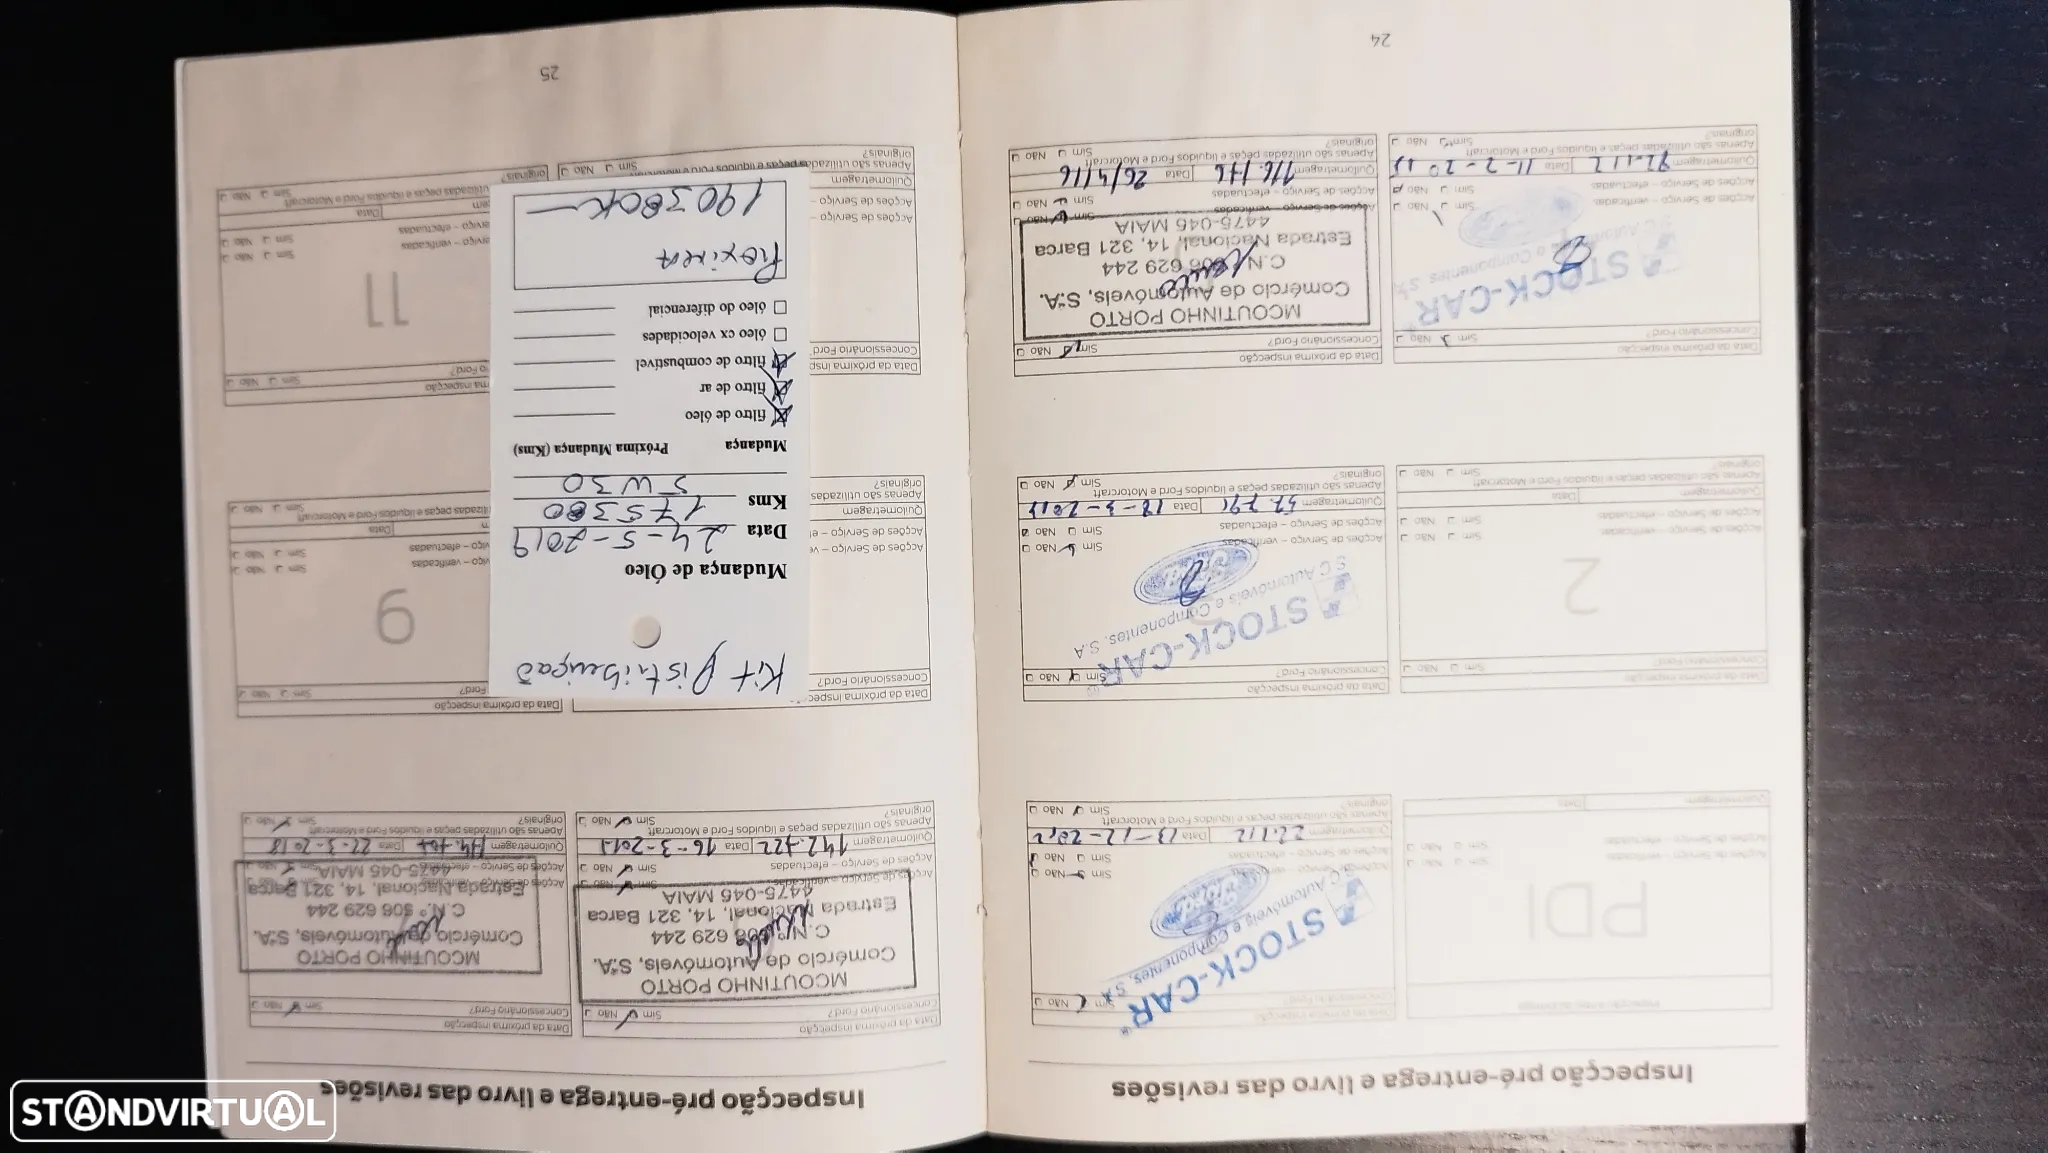 Inspecção pré-entrega e livro das revisões
PDI
STOCK-CAR
S.C Automóveis e Componentes, S.A
Quilometragem 22.112 Data 13-12-2012
Apenas são utilizadas peças e líquidos Ford e Motorcraft originais?
Sim Não
2
Data da próxima inspecção
Concessionário Ford?
Sim Não
Acções de Serviço – verificadas
Sim Não
Acções de Serviço – efectuadas
Sim Não
Quilometragem
Data
Apenas são utilizadas peças e líquidos Ford e Motorcraft originais?
Sim Não
Data da próxima inspecção
Concessionário Ford?
Sim Não
STOCK-CAR
S.C Automóveis e Componentes, S.A
Acções de Serviço – verificadas
Sim Não
Acções de Serviço – efectuadas
Sim Não
Quilometragem
Data 18-3-
Apenas são utilizadas peças e líquidos Ford e Motorcraft originais?
Sim Não
Data da próxima inspecção
Concessionário Ford?
Sim Não
STOCK-CAR
Acções de Serviço – verificadas
Sim Não
Acções de Serviço – efectuadas
Sim Não
Quilometragem
Data 11-2-2015
Apenas são utilizadas peças e líquidos Ford e Motorcraft originais?
Sim Não
Data da próxima inspecção
Concessionário Ford?
Sim Não
MCOUTINHO PORTO
Comércio de Automóveis, S.A.
C.N.º 506 629 244
Estrada Nacional, 14, 321 Barca
4475-045 MAIA
Acções de Serviço – verificadas
Sim Não
Acções de Serviço – efectuadas
Sim Não
Quilometragem 116.176 Data 26/4/16
Apenas são utilizadas peças e líquidos Ford e Motorcraft originais?
Sim Não
24
Inspecção pré-entrega e livro das revisões
Data da próxima inspecção
Concessionário Ford?
Sim Não
MCOUTINHO PORTO
Comércio de Automóveis, S.A.
C.N.º 506 629 244
Estrada Nacional, 14, 321 Barca
4475-045 MAIA
Acções de Serviço – verificadas
Acções de Serviço – efectuadas
Quilometragem 142.422 Data 16-3-2017
Apenas são utilizadas peças e líquidos Ford e Motorcraft originais?
Sim Não
Data da próxima inspecção
Concessionário Ford?
Sim Não
MCOUTINHO PORTO
Comércio de Automóveis, S.A.
C.N.º 506 629 244
Estrada Nacional, 14, 321 Barca
4475-045 MAIA
Quilometragem
Data 22-3-2018
Apenas são utilizadas peças e líquidos Ford e Motorcraft originais?
Sim Não
9
11
Kit Distribuição
Mudança de Óleo
Data 24-5-2019
Kms 175380
5W30
Mudança Próxima Mudança (Kms)
filtro de óleo
filtro de ar
filtro de combustível
óleo cx velocidades
óleo do diferencial
Próxima
190380K
25
STANDVIRTUAL